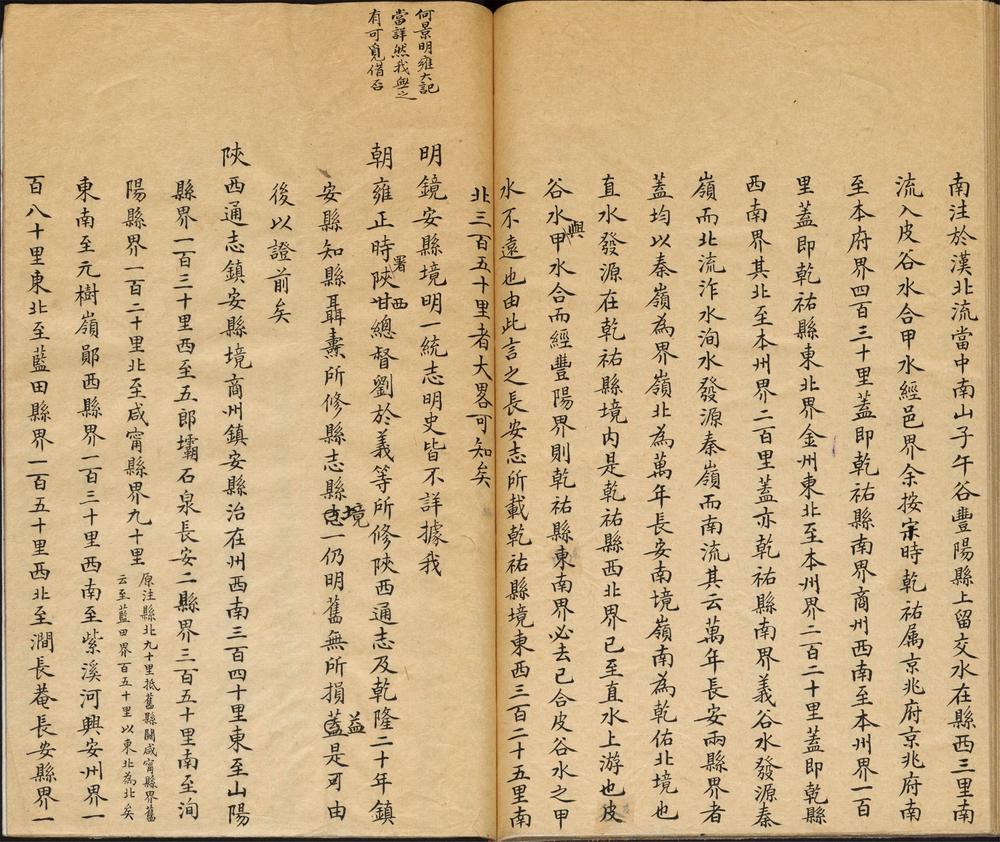 南注於漢北流當中南山子午谷豐陽縣上留交水在縣西三里南
流入皮谷水合甲水經邑界余按宗時乾祐属京兆府京兆府南
至本府界四百三十里蓋即乾祐縣南界商州西南至本州界一百
里蓋即乾祐縣東北界金州東北至本州界二百二十里蓋即乾縣
西南界其北至本州界二百里蓋亦乾祐縣南界義谷水發源秦
嶺而北流泎水洵水發源秦嶺而南流其云萬年長安兩縣界者
蓋均以秦嶺為界嶺北為萬年長安南境嶺南為乾佑北境也
直水發源在乾祐縣境内是乾祐縣西北界已至直水上游也皮
谷水與甲水合而經豐陽界則乾祐縣東南界必去已合皮谷水之甲
水不遠也由此言之長安志所載乾祐縣境東西三百二十五里南
北三百五十里者大畧可知矣
何景明雍大記
當詳然我無之
有可覓借否
明鎮安縣境明一統志明史皆不詳據我
朝雍正時陝署西總督劉於義等所修陝西通志及乾隆二十年鎮
安縣知縣聶燾所修縣志縣境一仍明舊無所損益是可由
後以證前矣
陝西通志鎮安縣境商州鎮安縣治在州西南三百四十里東至山陽
縣界一百三十里西至五郎壩石泉長安二縣界三百五十里南至洵
陽縣界一百二十里北至咸甯縣界九十里
原注縣北九十里抵舊縣關咸甯縣界舊
云至藍田界百五十里以東北為北矣
東南至元樹嶺鄖西縣界一百三十里西南至紫溪河興安州界一
百八十里東北至藍田縣界一百五十里西北至澗長菴長安縣界一